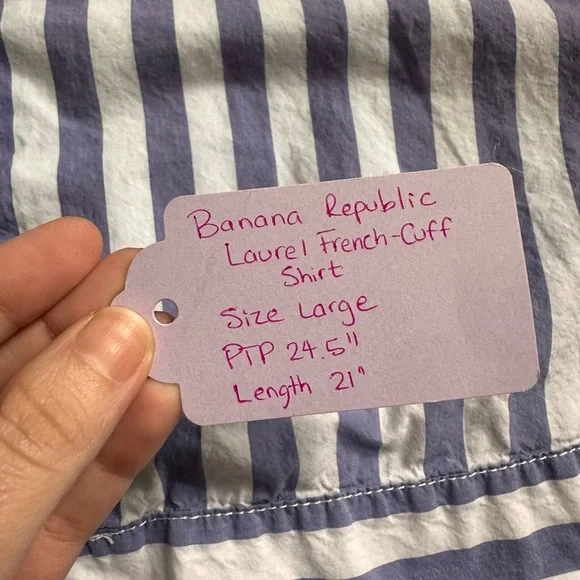 Banana Republic
Laurel French-Cuff
Shirt
Size Large
PTP 24.5"
Length 21"